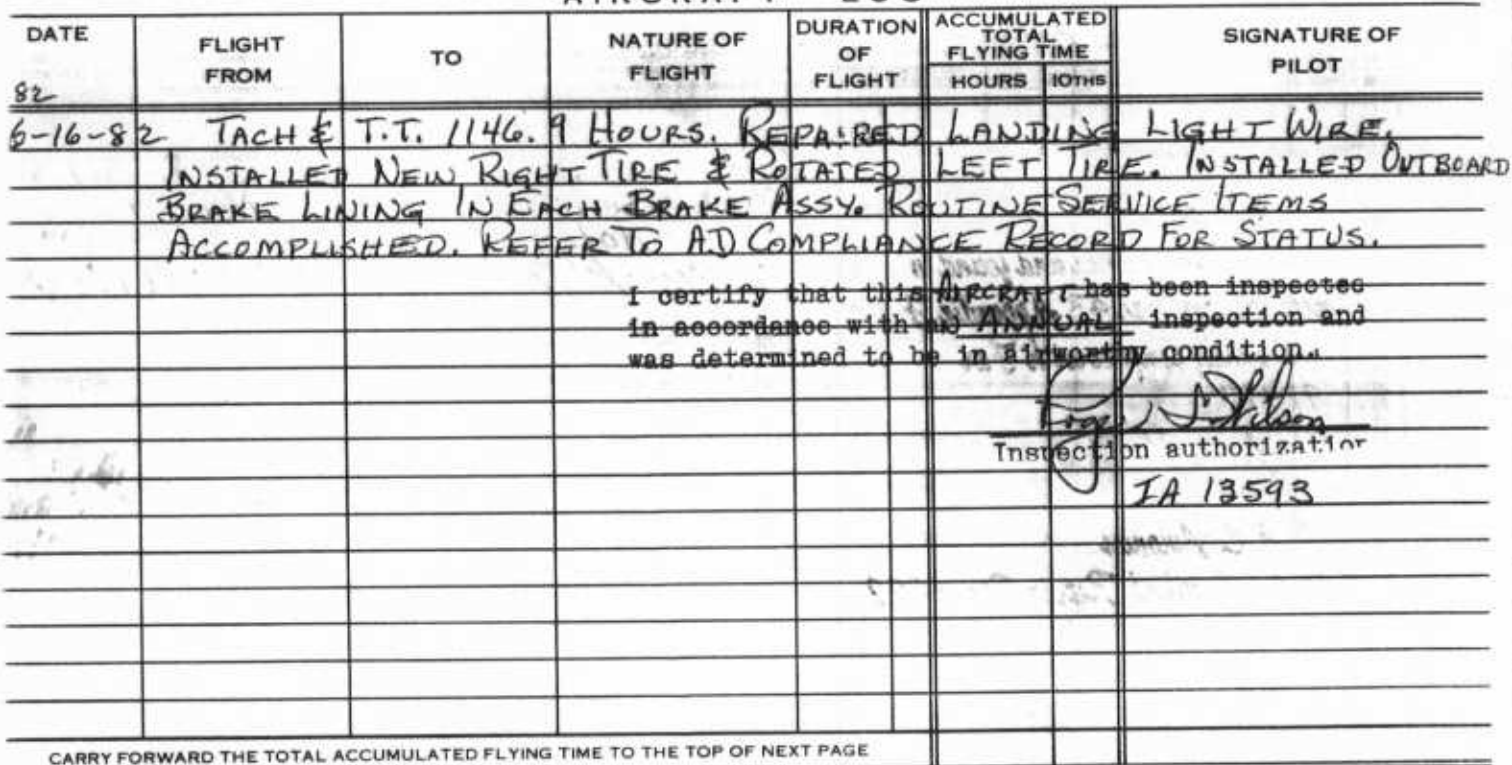 AIRCRAFT LOG
DATE
82
FLIGHT
FROM
TO
NATURE OF
FLIGHT
DURATION
OF
FLIGHT
ACCUMULATED
TOTAL
FLYING TIME
HOURS 10THS
SIGNATURE OF
PILOT
6-16-82 TACH & T.T. 1146.9 HOURS. REPAIRED LANDING LIGHT WIRE.
INSTALLED NEW RIGHT TIRE & ROTATED LEFT TIRE. INSTALLED OUTBOARD
BRAKE LINING IN EACH BRAKE ASSY. ROUTINE SERVICE ITEMS
ACCOMPLISHED. REFER TO AD COMPLIANCE RECORD FOR STATUS.
I certify that this AIRCRAFT has been inspected
in accordance with AN ANNUAL inspection and
was determined to be in airworthy condition.
Roger Wilson
Inspection authorization
IA 13593
CARRY FORWARD THE TOTAL ACCUMULATED FLYING TIME TO THE TOP OF NEXT PAGE